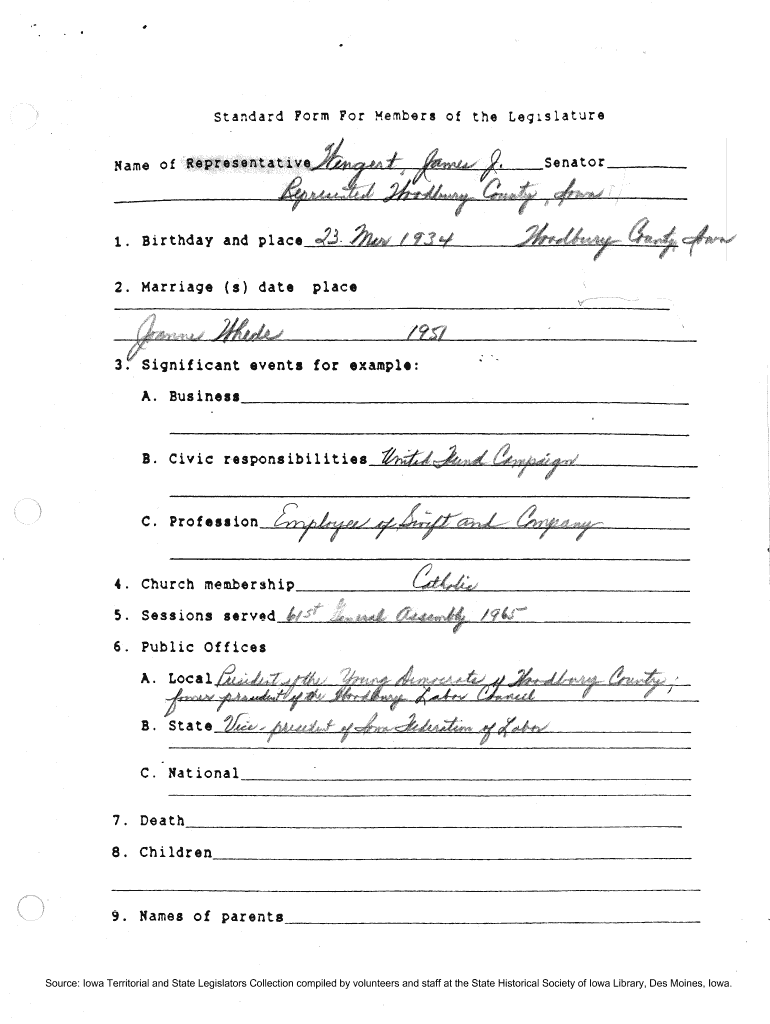 Standard Form For Members of the Legislature
Name of Representative Wengert, James J. Senator
Represented Woodbury County, Iowa
1. Birthday and place 23 Mar 1934 Woodbury County, Iowa
2. Marriage (s) date place
Joanne 1951
3. Significant events for example:
A. Business
B. Civic responsibilities United Fund Campaign
C. Profession Employee of Swift and Company
4. Church membership Catholic
5. Sessions served 61st General Assembly 1965
6. Public Offices
A. Local President of the Young Democrats of Woodbury County;
former president of the Woodbury Labor Council
B. State Vice-president of Iowa Federation of Labor
C. National
7. Death
8. Children
9. Names of parents
Source: Iowa Territorial and State Legislators Collection compiled by volunteers and staff at the State Historical Society of Iowa Library, Des Moines, Iowa.